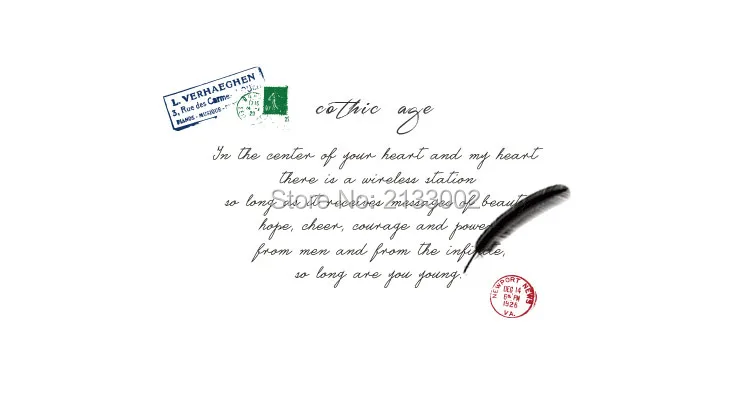 L. VERHAEGHEN
3, Rue des Carme
PIANOS - MUSIQUE -
cothic age
In the center of your heart and my heart
there is a wireless station
so long as it receives messages of beaut
hope, cheer, courage and powe
from men and from the infinite,
so long are you young.
Store No: 2133002
NEWPORT NEWS
DEC 14
6 PM
1926
VA.